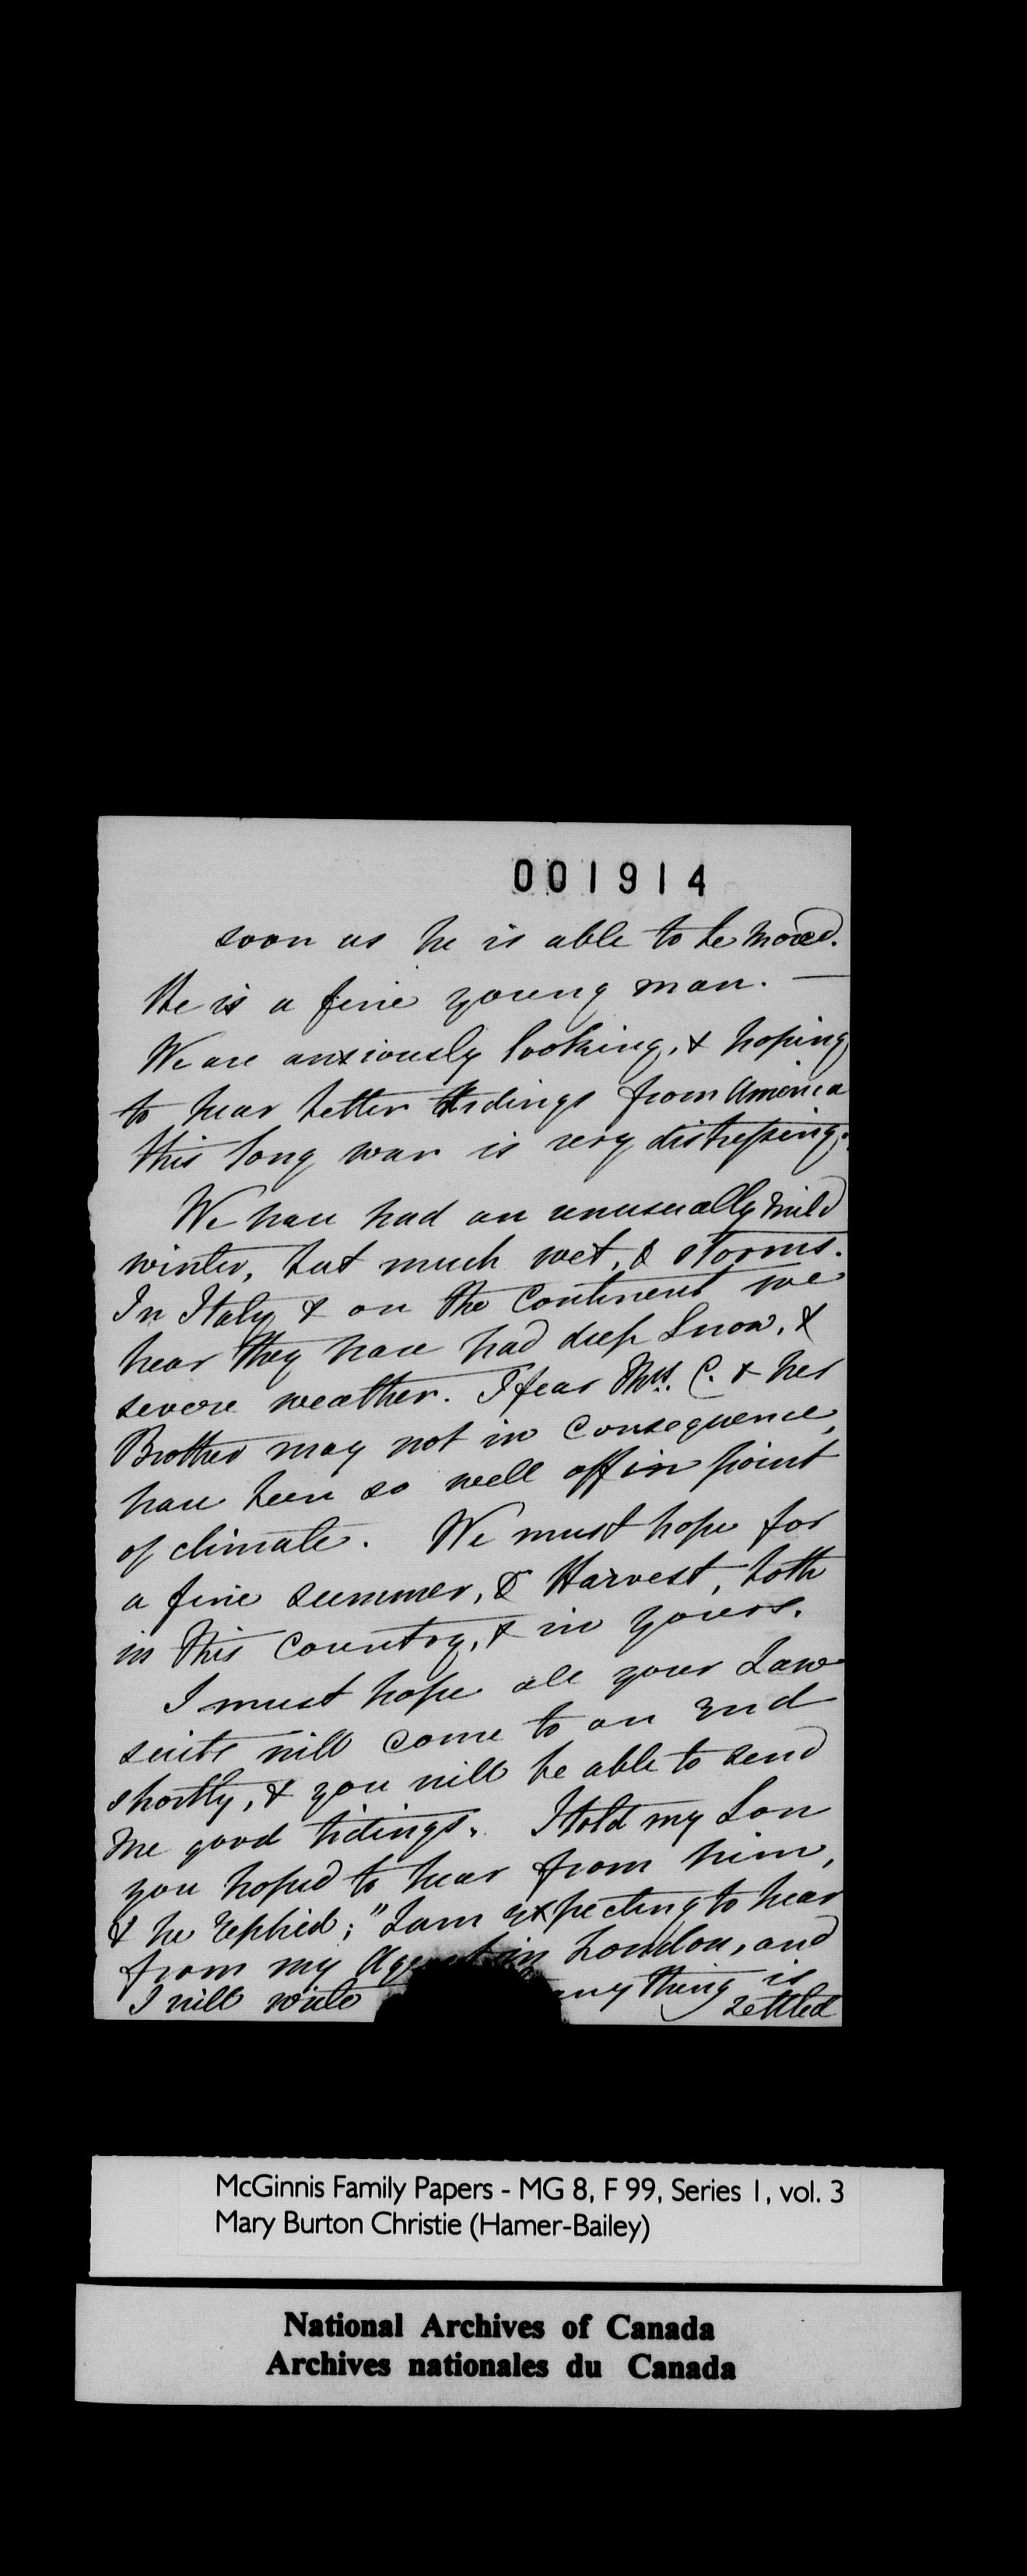 001914
soon as he is able to be moved.
He is a fine young man. —
We are anxiously looking, & hoping
to hear better tidings from America
this long war is very distressing.
We have had an unusually mild
winter, but much wet, & storms.
In Italy & on the Continent we
hear they have had deep Snow, &
severe weather. I fear Mrs. C. & her
Brother may not in consequence,
have been so well off in point
of climate. We must hope for
a fine summer, & Harvest, both
in this Country, & in yours.
I must hope all your Law
suits will come to an End
shortly, & you will be able to send
me good tidings. I told my Son
you hoped to hear from him,
& he replied; "I am expecting to hear
from my Agent in London, and
I will write any thing is
settled
McGinnis Family Papers - MG 8, F 99, Series 1, vol. 3
Mary Burton Christie (Hamer-Bailey)
National Archives of Canada
Archives nationales du Canada